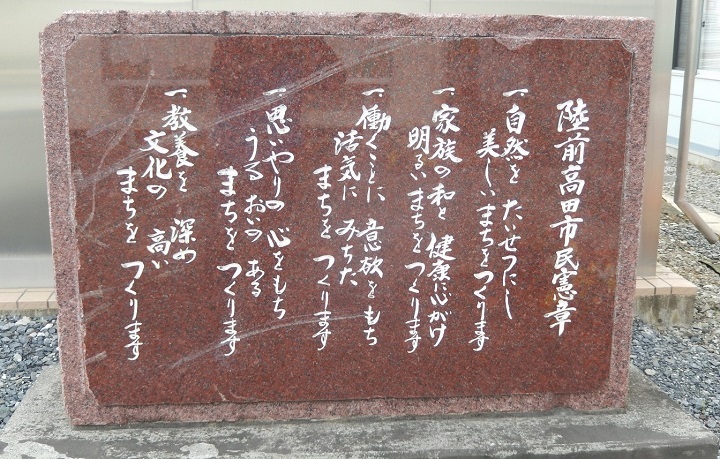 陸前高田市民憲章
一、自然を たいせつにし
美しいまちを つくります
一、家族の和と 健康に心がけ
明るいまちを つくります
一、働くことに 意欲をもち
活気に みちた
まちを つくります
一、思いやりの 心をもち
うるおいの ある
まちを つくります
一、教養を 深め
文化の 高い
まちを つくります